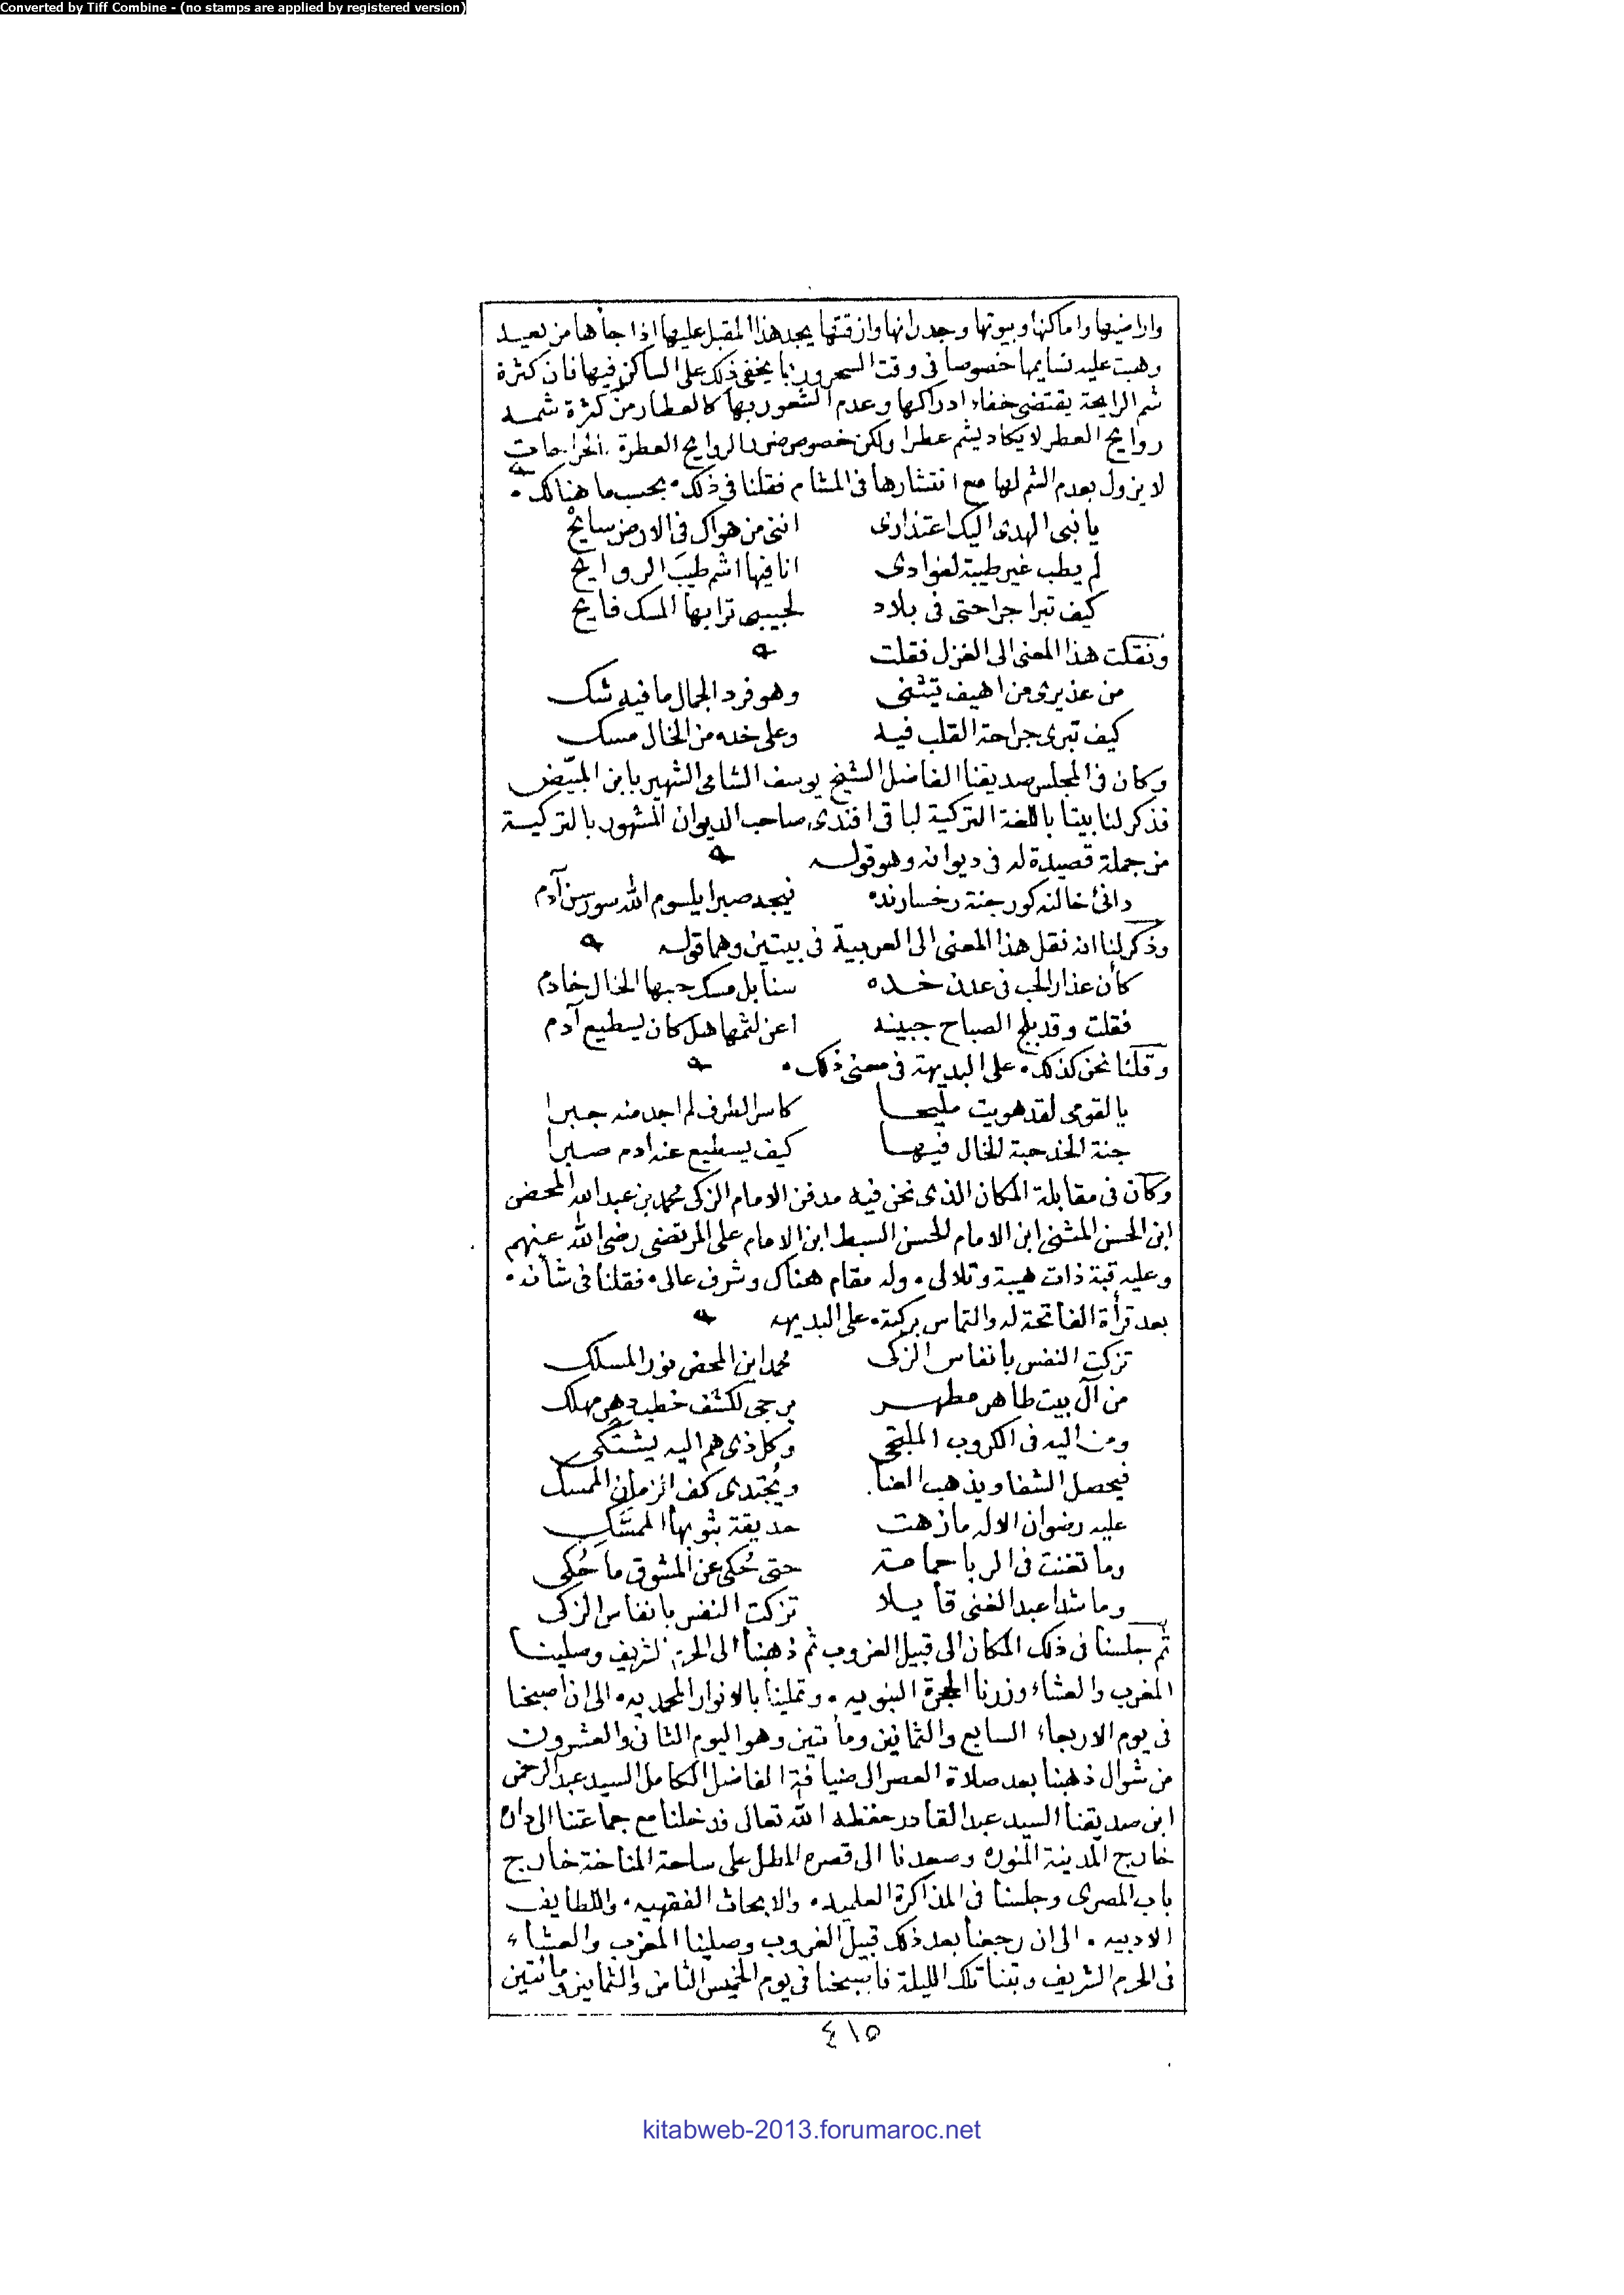 Converted by Tiff Combine - (no stamps are applied by registered version)
واراضيها واماكنها وبيوتها وجدرانها وازقتها يجد هذا المقبل عليها اذا جأها من بعيد
وهبت عليه نسايمها خصوصا فى وقت السحر وربما يخفى ذلك على الساكن فيها فان كثرة
شم الرايحة يقتضى خفاء ادراكها وعدم الشعور بها كالعطار من كثرة شمه
روايح العطر لا يكاد يشم عطرا ولكن خصوص ضرر الروايح العطرة الجراحات
لا يزول بعدم الشم لها مع انتشارها فى المشام فقلنا فى ذلك ۰ بحسب ما هنالك ۰
يا نبى الهدى اليك اعتذارى اننى من هواك فى الارض سايح
لم يطب غير طيبة لفوادى انا فيها اشم طيب الروايح
كيف تبرا جراحتى فى بلاد لحبيبى ترابها المسك فايح
ونقلت هذا المعنى الى الغزل فقلت
من عذيرى من اهيف يتثنى وهو فرد الجمال ما فيه شك
كيف تبرى جراحة القلب فيه وعلى خده من الخال مسك
وكان فى المجلس صديقنا الفاضل الشيخ يوسف الشامى الشهير بابن المبيّض
فذكر لنا بيتا باللغة التركية لباقى افندى صاحب الديوان المشهور بالتركية
من جملة قصيدة له فى ديوانه وهو قوله
دانئ خالنه كور جنة رخسارنده نيجه صبر ايلسوم الله سورسن آدم
وذكر لنا انه نقل هذا المعنى الى العربية فى بيتين وهما قوله
كأن عذار الحب فى عدن خده سنابل مسك حبها الخال خادم
فقلت وقد بلج الصباح جبينه اعن لثمها هل كان يسطيع آدم
وقلنا نحن كذلك ۰ على البديهة فى معنى ذلك ۰
يا لقومى لقد هويت مليحا كاسر الطرف لم اجد منه جبرا
جنة الخد حبة الخال فيها كيف يسطيع عنه ادم صبرا
وكان فى مقابلة المكان الذى نحن فيه مدفن الامام الزكى محمد بن عبد الله المحض
ابن الحسن المثنى ابن الامام الحسن السبط ابن الامام على المرتضى رضى الله عنهم
وعليه قبة ذات هيبة وتلالى ۰ وله مقام هناك وشرف عالى ۰ فقلنا فى شأنه ۰
بعد قرأة الفاتحة له والتماس بركته ۰ على البديهه
تزكت النفس بأنفاس الزكى محمد ابن المحض نور المسلك
من آل بيت طاهر مطهر يرجى لكشف خطب دهر مهلك
ومن اليه فى الكروب الملتجى وكل ذى هم اليه يشتكى
فيحصل الشفا ويذهب العنا ويُجتدى كف الزمان الممسك
عليه رضوان الاله ما زهت حديقة بثوبها الممسّك
وما تغنت فى الربا حمامة حتى حُكى عن المشوق ما حُكى
وما شدا عبد الغنى قايلا تزكت النفس بانفاس الزكى
ثم جلسنا فى ذلك المكان الى قبيل الغروب ثم ذهبنا الى الحرم الشريف وصلينا
المغرب والعشاء وزرنا الحجرة النبويه ۰ وتملينا بالانوار المحمديه ۰ الى ان اصبحنا
فى يوم الاربعاء السابع والثمانين ومأتين وهو اليوم الثانى والعشرون
من شوال ذهبنا بعد صلاة العصر الى ضيافة الفاضل الكامل السيد عبد الرحمن
ابن صديقنا السيد عبد القادر حفظه الله تعالى فدخلنا مع جماعتنا الى داره
خارج المدينة المنوره وصعدنا الى قصره المطل على ساحة المناخة خارج
باب المصرى وجلسنا فى المذاكرة العلميه ۰ والابحاث الفقهيه ۰ واللطايف
الادبيه ۰ الى ان رجعنا بعد ذلك قبيل الغروب وصلينا المغرب والعشاء
فى الحرم الشريف وبتنا تلك الليلة فاصبحنا فى يوم الخميس الثامن والثمانين ومائتين
٤١٥
kitabweb-2013.forumaroc.net